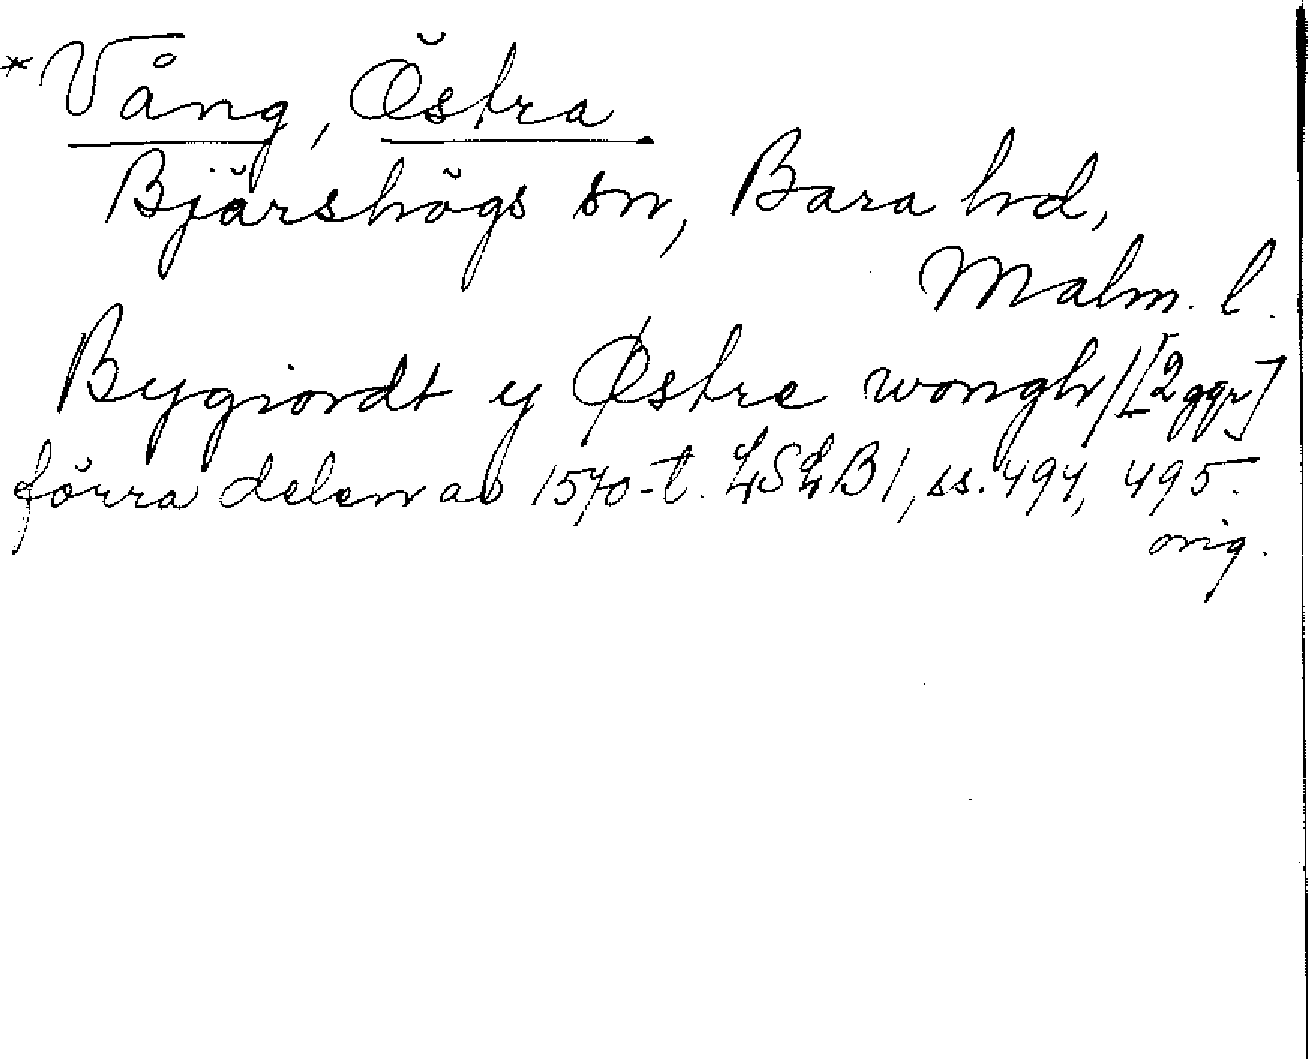 *Vång, Östra
Bjärshögs sn, Bara hd,
Malm. l.
Bygiordt y Østre wongh/[2 ggr]
förra delen av 1570-t. LSLB 1, ss. 494, 495.
orig.